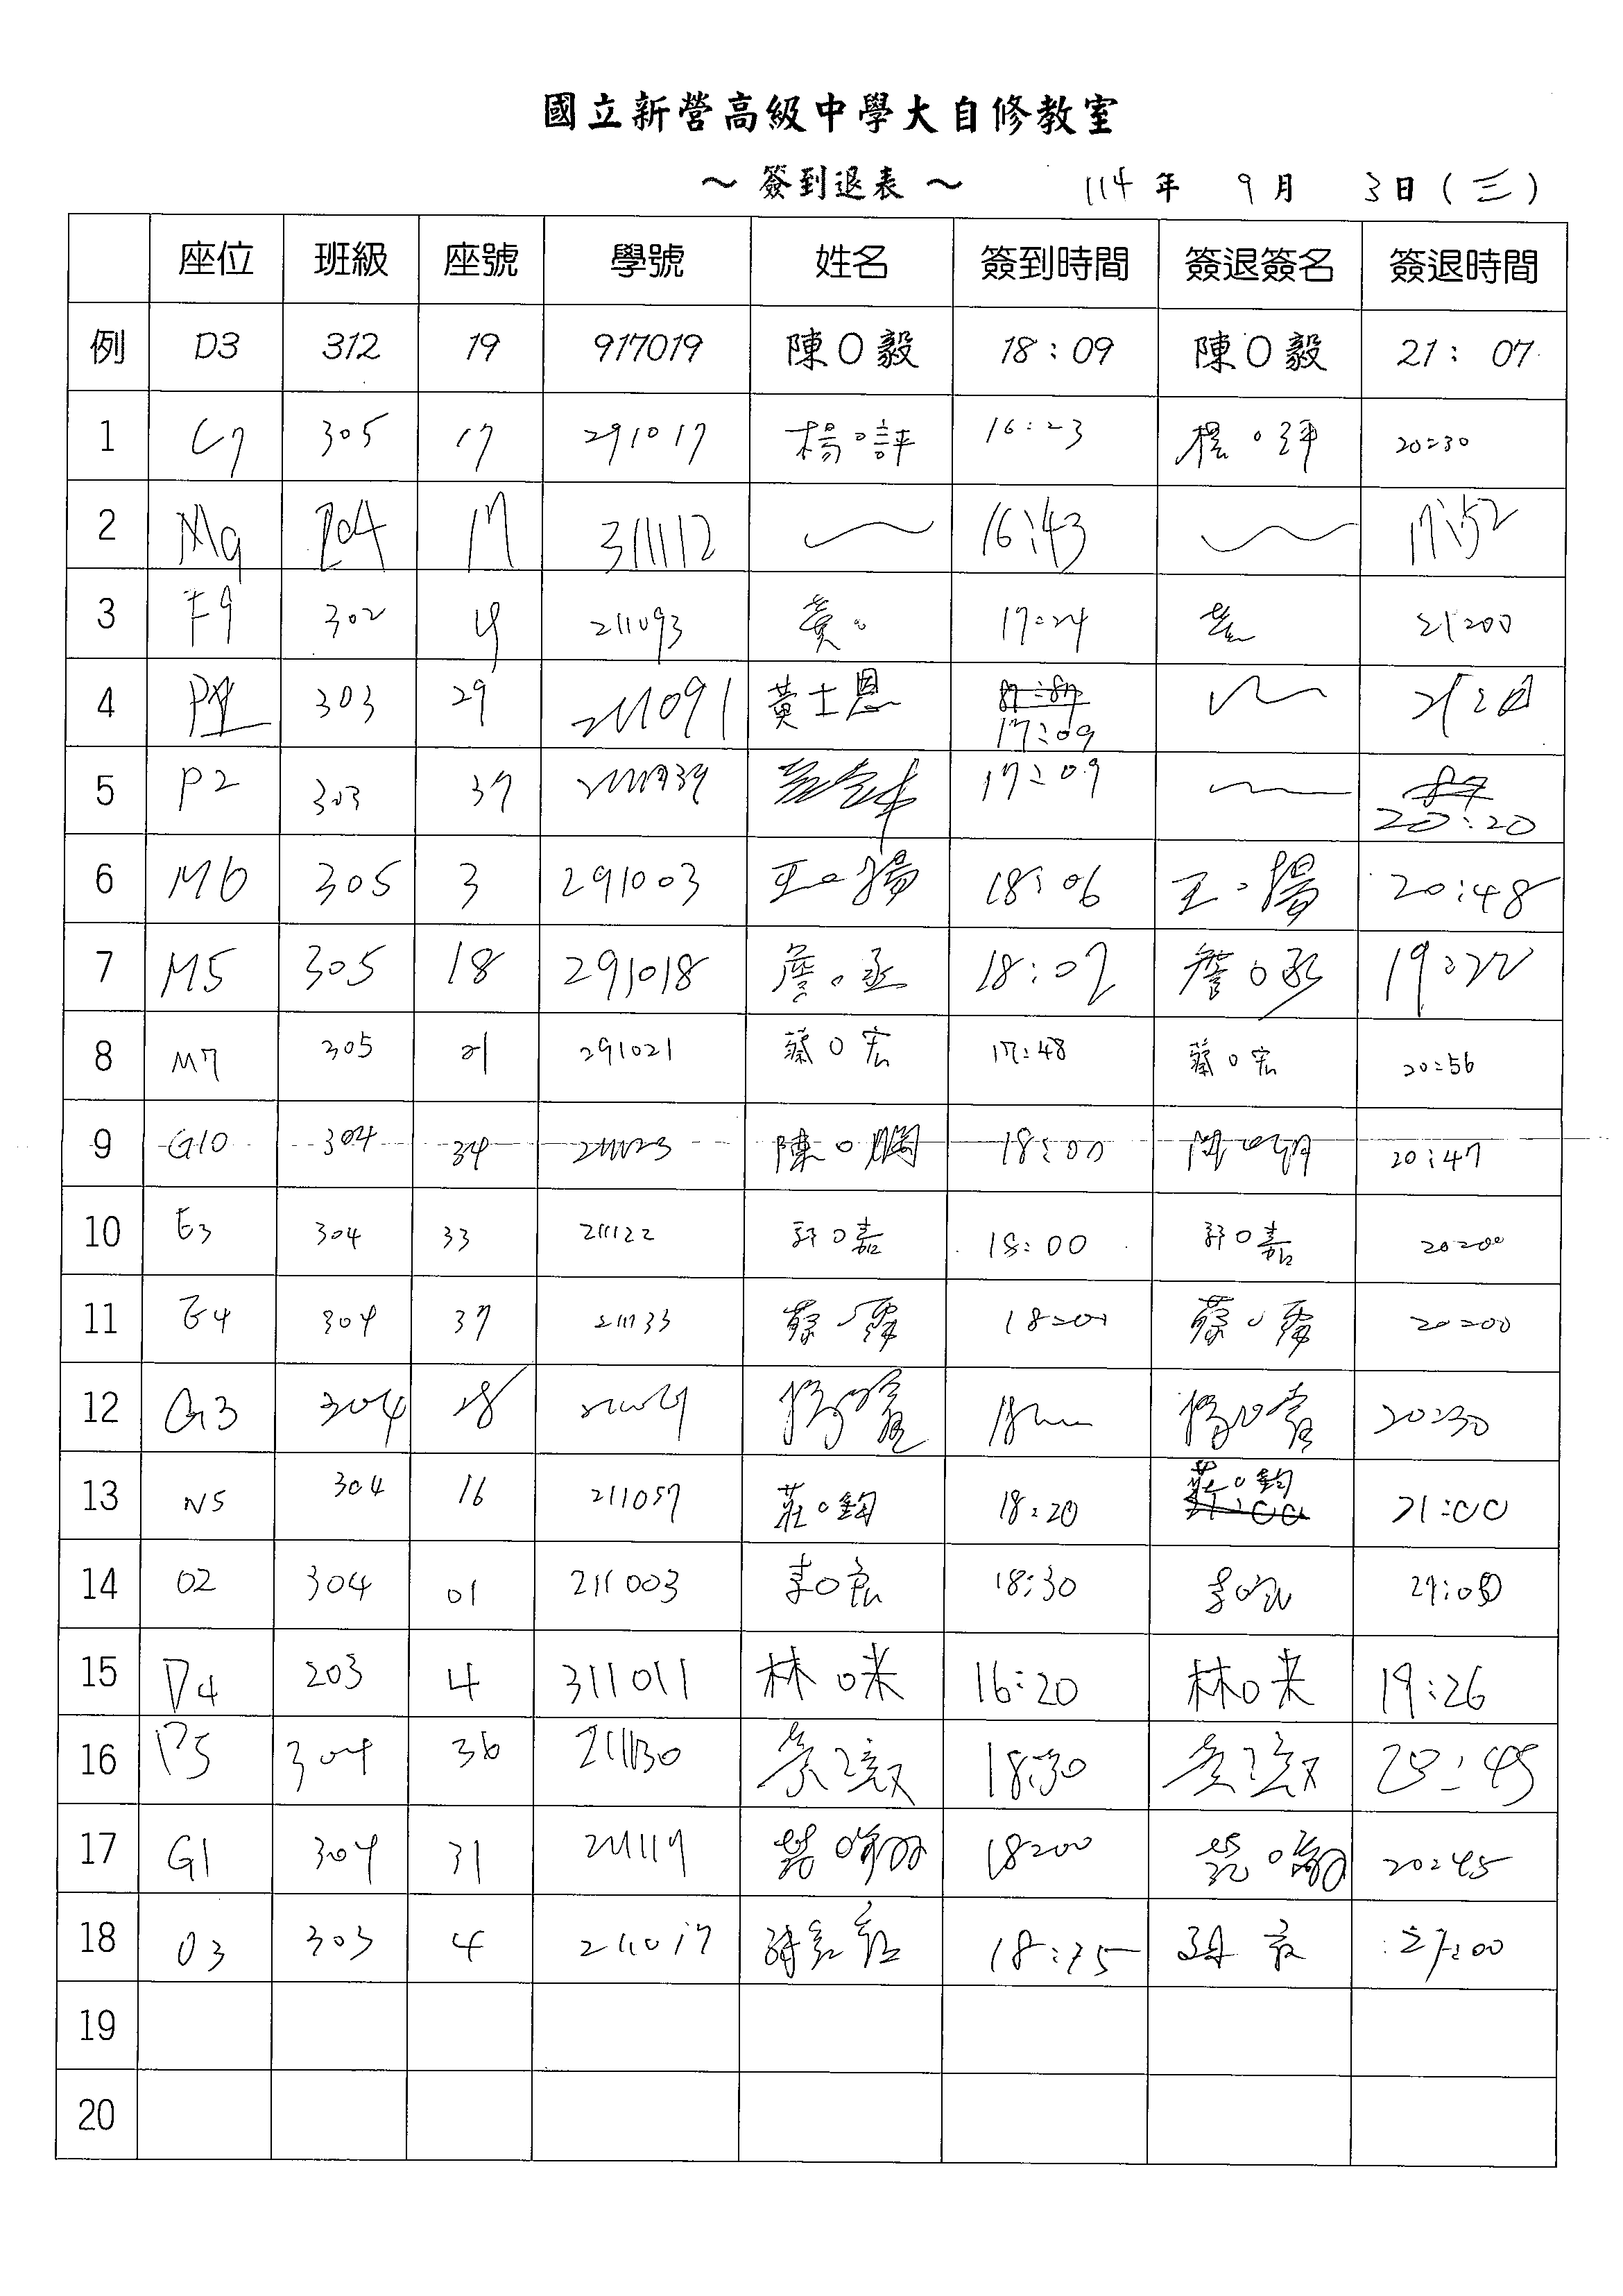 國立新營高級中學大自修教室
～ 簽到退表 ～ 114 年 9 月 3 日 ( 三 )
座位 班級 座號 學號 姓名 簽到時間 簽退簽名 簽退時間
例 D3 312 19 917019 陳O毅 18:09 陳O毅 21:07
1 C7 305 17 291017 楊O評 16:23 楊O評 20:30
2 M9 204 17 311112 16:43 17:52
3 F9 302 211093 黃O 17:24 黃 21:00
4 303 29 211091 黃士恩 17:09
5 P2 303 37 17:09 20:20
6 M6 305 3 291003 王O揚 18:06 王O揚 20:48
7 M5 305 18 291018 詹O丞 18:02 詹O丞 19:22
8 M7 305 21 291021 蔡O宏 17:48 蔡O宏 20:56
9 G10 304 34 211123 陳O 18:00 20:47
10 E3 304 33 211122 O嘉 18:00 O嘉 20:00
11 E4 304 37 211133 蔡O霈 18:01 蔡O霈 20:00
12 G3 304 28 楊O 楊O 20:30
13 N5 304 16 211057 莊O鈞 18:20 莊O鈞 21:00
14 O2 304 01 211003 李O宸 18:30 李O 21:00
15 D4 203 4 311011 林O咪 16:20 林O 19:26
16 P5 304 36 211130 18:30 20:45
17 G1 304 31 211119 18:00 20:45
18 O3 303 4 211017 18:25 21:00
19
20